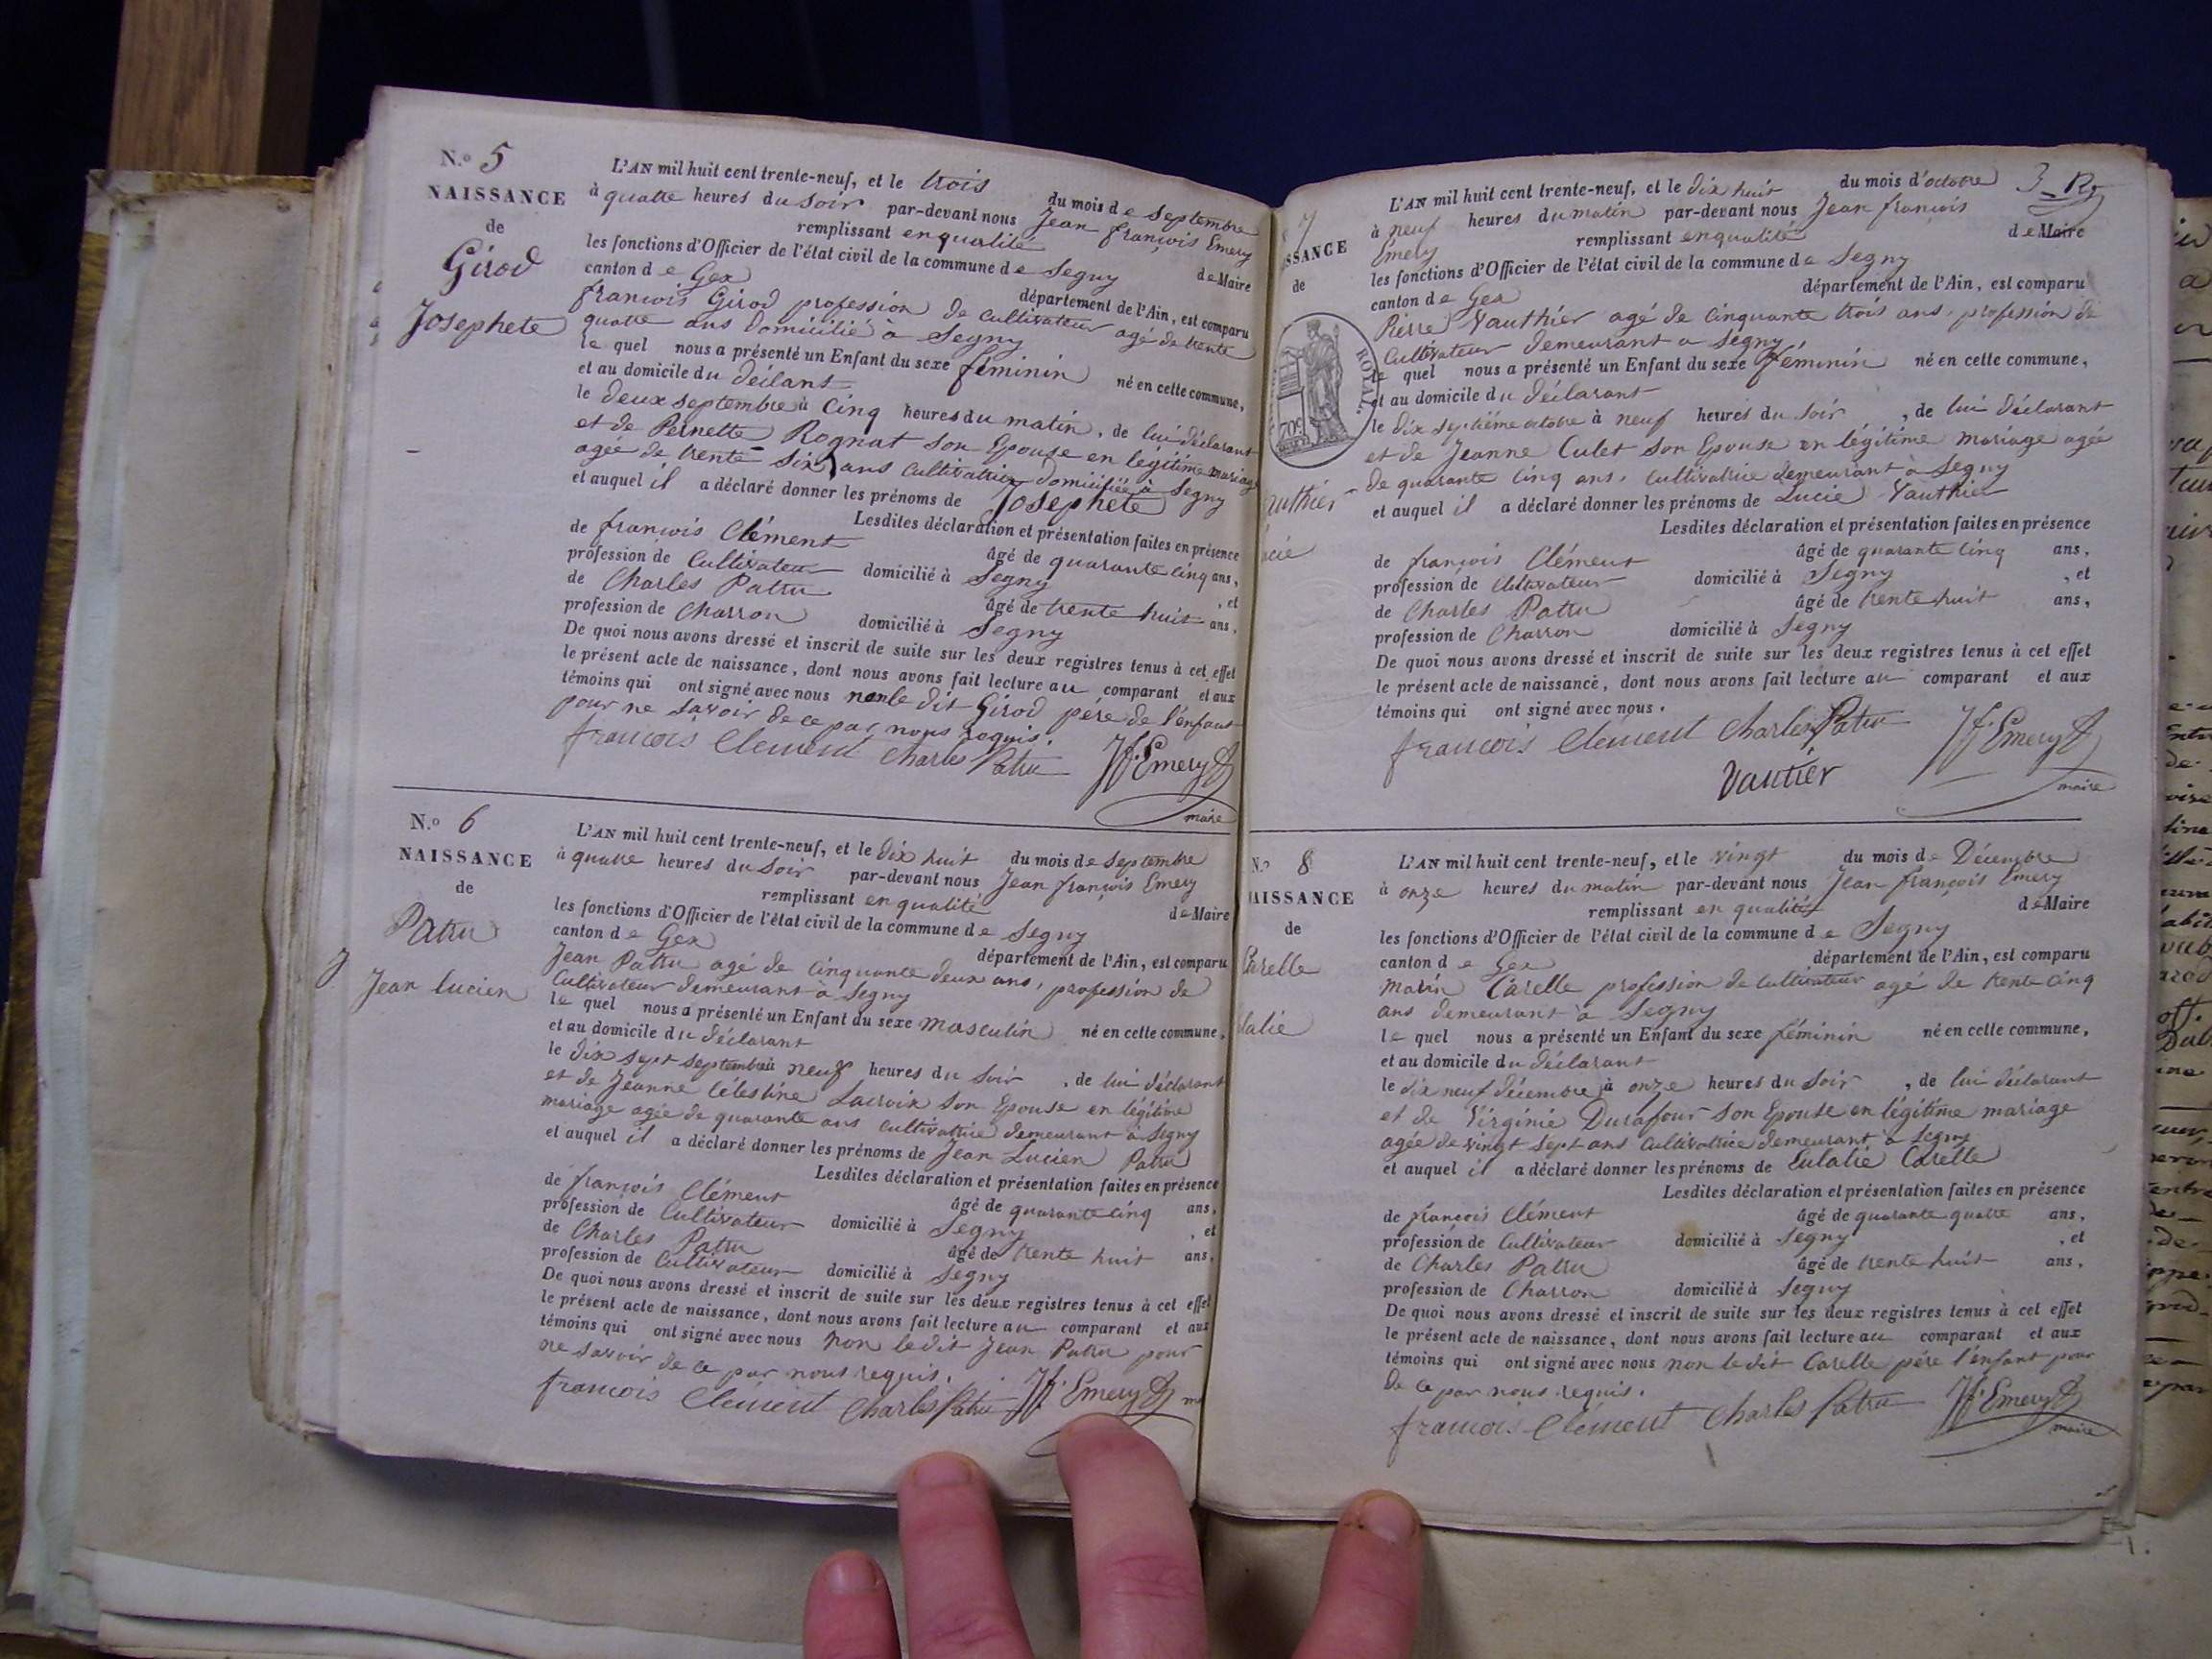 N.º 5
NAISSANCE
de
Girod
Josephete
L'AN mil huit cent trente-neuf, et le trois du mois de Septembre
à quatre heures du Soir par-devant nous Jean François Emery
remplissant en qualité de Maire
les fonctions d'Officier de l'état civil de la commune de Segny
canton de Gex département de l'Ain, est comparu
françois Girod profession de cultivateur agé de trente
quatre ans domicilié à Segny
le quel nous a présenté un Enfant du sexe féminin né en cette commune,
et au domicile du déclarant
le deux septembre à Cinq heures du matin, de lui déclarant
et de Pernette Rognat son Epouse en légitime mariage
agée de trente six ans cultivatrice domiciliée à Segny
et auquel il a déclaré donner les prénoms de Josephete
Lesdites déclaration et présentation faites en présence
de françois Clément âgé de quarante cinq ans,
profession de Cultivateur domicilié à Segny , et
de Charles Patru âgé de trente huit ans,
profession de Charron domicilié à Segny
De quoi nous avons dressé et inscrit de suite sur les deux registres tenus à cet effet
le présent acte de naissance, dont nous avons fait lecture au comparant et aux
témoins qui ont signé avec nous non le dit Girod père de l'enfant
pour ne savoir de ce par nous requis.
francois Clement Charles Patru Jf. Emery
maire
N.º 6
NAISSANCE
de
Patru
Jean Lucien
L'AN mil huit cent trente-neuf, et le dix huit du mois de Septembre
à quatre heures du Soir par-devant nous Jean françois Emery
remplissant en qualité de Maire
les fonctions d'Officier de l'état civil de la commune de Segny
canton de Gex département de l'Ain, est comparu
Jean Patru agé de Cinquante deux ans, profession de
Cultivateur demeurant à Segny
le quel nous a présenté un Enfant du sexe masculin né en cette commune,
et au domicile du déclarant
le dix sept septembre à neuf heures du Soir , de lui déclarant
et de Jeanne Célestine Lacroix son Epouse en légitime
mariage agée de quarante ans cultivatrice demeurant à Segny
et auquel il a déclaré donner les prénoms de Jean Lucien Patru
Lesdites déclaration et présentation faites en présence
de françois Clément âgé de quarante cinq ans,
profession de Cultivateur domicilié à Segny , et
de Charles Patru âgé de trente huit ans,
profession de Cultivateur domicilié à Segny
De quoi nous avons dressé et inscrit de suite sur les deux registres tenus à cet effet
le présent acte de naissance, dont nous avons fait lecture au comparant et aux
témoins qui ont signé avec nous non le dit Jean Patru pour
ne savoir de ce par nous requis.
francois Clement Charles Patru Jf. Emery
3
7
SSANCE
de
authier
ucie
ROYAL.
L'AN mil huit cent trente-neuf, et le dix huit du mois d'octobre
à neuf heures du matin par-devant nous Jean françois
Emery remplissant en qualité de Maire
les fonctions d'Officier de l'état civil de la commune de Segny
canton de Gex département de l'Ain, est comparu
Pierre Vauthier agé de cinquante trois ans, profession de
Cultivateur demeurant a Segny
le quel nous a présenté un Enfant du sexe féminin né en cette commune,
et au domicile du déclarant
le dix septième octobre à neuf heures du Soir , de lui déclarant
et de Jeanne Culet son Epouse en légitime mariage agée
de quarante cinq ans, cultivatrice demeurant à Segny
et auquel il a déclaré donner les prénoms de Lucie Vauthier
Lesdites déclaration et présentation faites en présence
de françois Clément âgé de quarante cinq ans,
profession de Cultivateur domicilié à Segny , et
de Charles Patru âgé de trente huit ans,
profession de Charron domicilié à Segny
De quoi nous avons dressé et inscrit de suite sur les deux registres tenus à cet effet
le présent acte de naissance, dont nous avons fait lecture au comparant et aux
témoins qui ont signé avec nous.
francois Clement Charles Patru Jf. Emery
Vautier maire
N.º 8
AISSANCE
de
Carelle
lalie
L'AN mil huit cent trente-neuf, et le vingt du mois de Décembre
à onze heures du matin par-devant nous Jean françois Emery
remplissant en qualité de Maire
les fonctions d'Officier de l'état civil de la commune de Segny
canton de Gex département de l'Ain, est comparu
Marin Carelle profession de cultivateur agé de trente cinq
ans demeurant à Segny
le quel nous a présenté un Enfant du sexe féminin né en cette commune,
et au domicile du déclarant
le dix neuf décembre à onze heures du Soir , de lui déclarant
et de Virginie Durafour son Epouse en légitime mariage
agée de vingt sept ans cultivatrice demeurant à Segny
et auquel il a déclaré donner les prénoms de Eulalie Carelle
Lesdites déclaration et présentation faites en présence
de françois Clément âgé de quarante quatre ans,
profession de Cultivateur domicilié à Segny , et
de Charles Patru âgé de trente huit ans,
profession de Charron domicilié à Segny
De quoi nous avons dressé et inscrit de suite sur les deux registres tenus à cet effet
le présent acte de naissance, dont nous avons fait lecture au comparant et aux
témoins qui ont signé avec nous non le dit Carelle père l'enfant pour
de ce par nous requis.
francois Clement Charles Patru Jf. Emery
maire